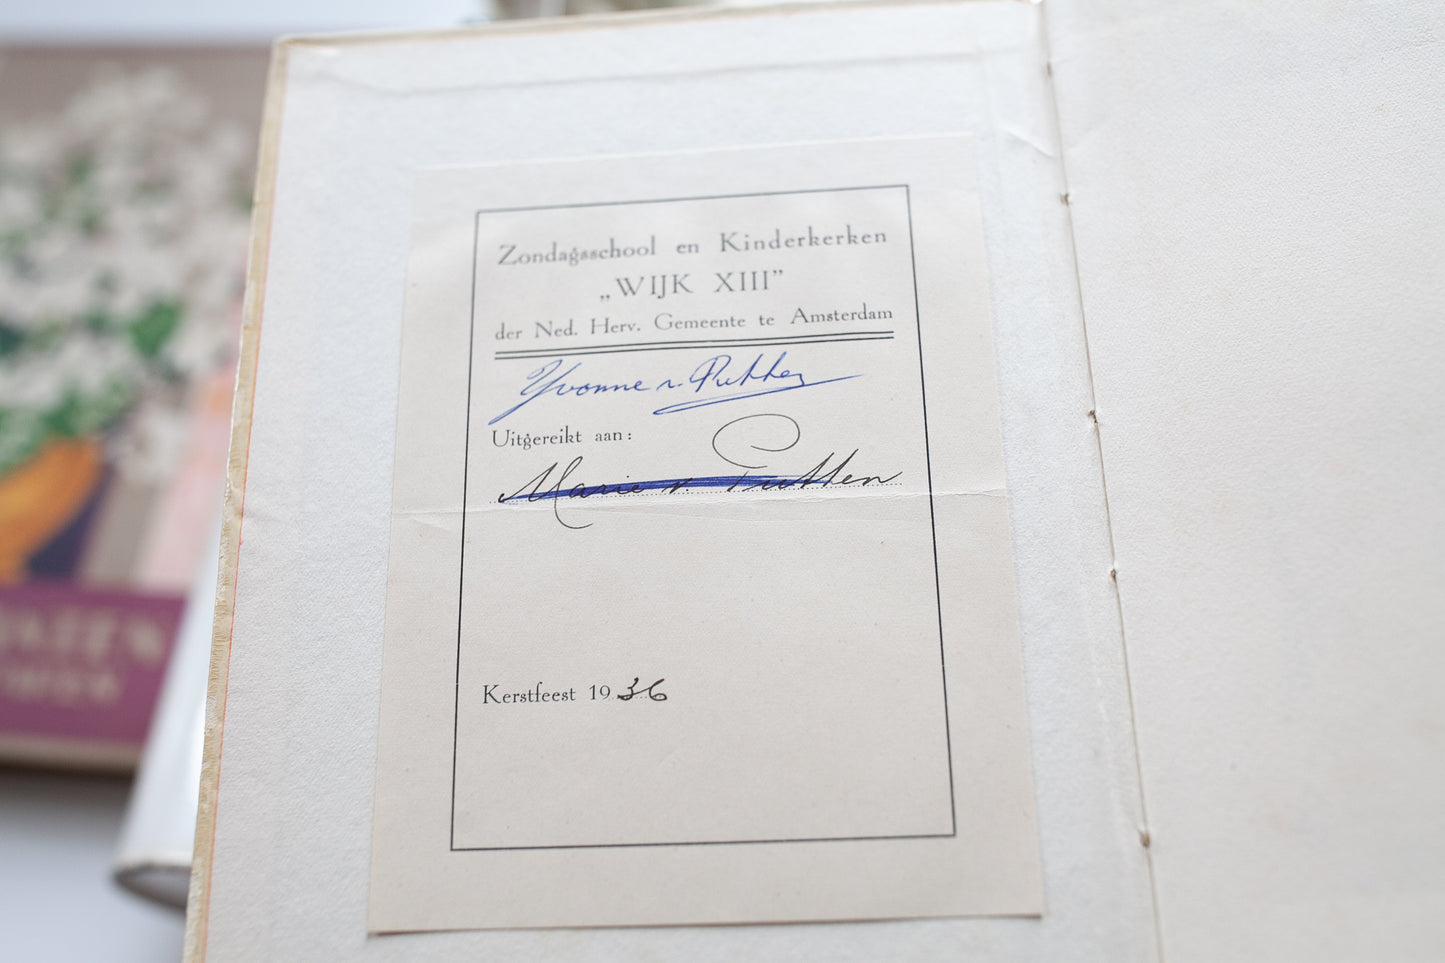 Zondagsschool en Kinderkerken
„WIJK XIII”
der Ned. Herv. Gemeente te Amsterdam
Yvonne v. Putten
Uitgereikt aan:
Marie v. Putten
Kerstfeest 1936